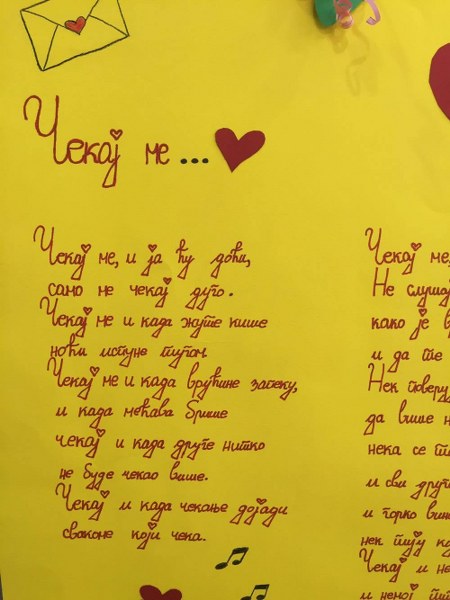 Чекај ме ...
Чекај ме, и ја ћу доћи,
само ме чекај дуго.
Чекај ме и када жуте кише
ноћи испуне тугом.
Чекај ме и када врућине запеку,
и када мећава брише
чекај и када друге нитко
не буде чекао више.
Чекај и када чекање дојади
свакоме који чека.
Чекај ме,
Не слушај
како је
и да те
Нек
да више
нека се
и сви
и горко
нек пију
Чекај и не
и немој